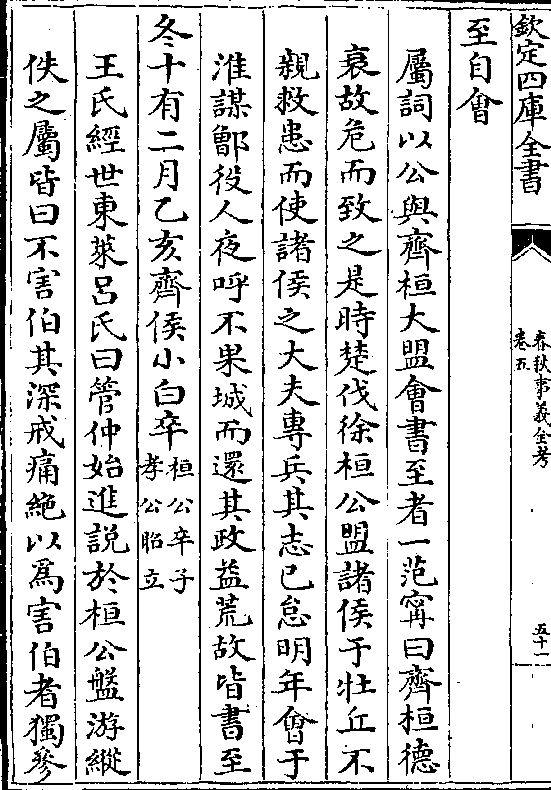 欽定四庫全書
春秋事義全考
卷五
五十一
至自會
屬詞以公與齊桓大盟會書至者一范甯曰齊桓德
衰故危而致之是時楚伐徐桓公盟諸侯于牡丘不
親救患而使諸侯之大夫專兵其志已怠明年會于
淮謀鄫役人夜呼不果城而還其政益荒故皆書至
冬十有二月乙亥齊侯小白卒桓公卒子
孝公昭立
王氏經世東萊呂氏曰管仲始進説於桓公盤游縱
佚之屬皆曰不害伯其深戒痛絶以爲害伯者獨參